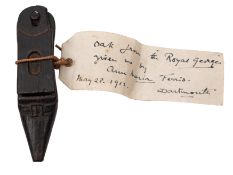 oak from the Royal George.
given us by
Anna Maria Ferris.
May 22. 1912.
Dartmouth